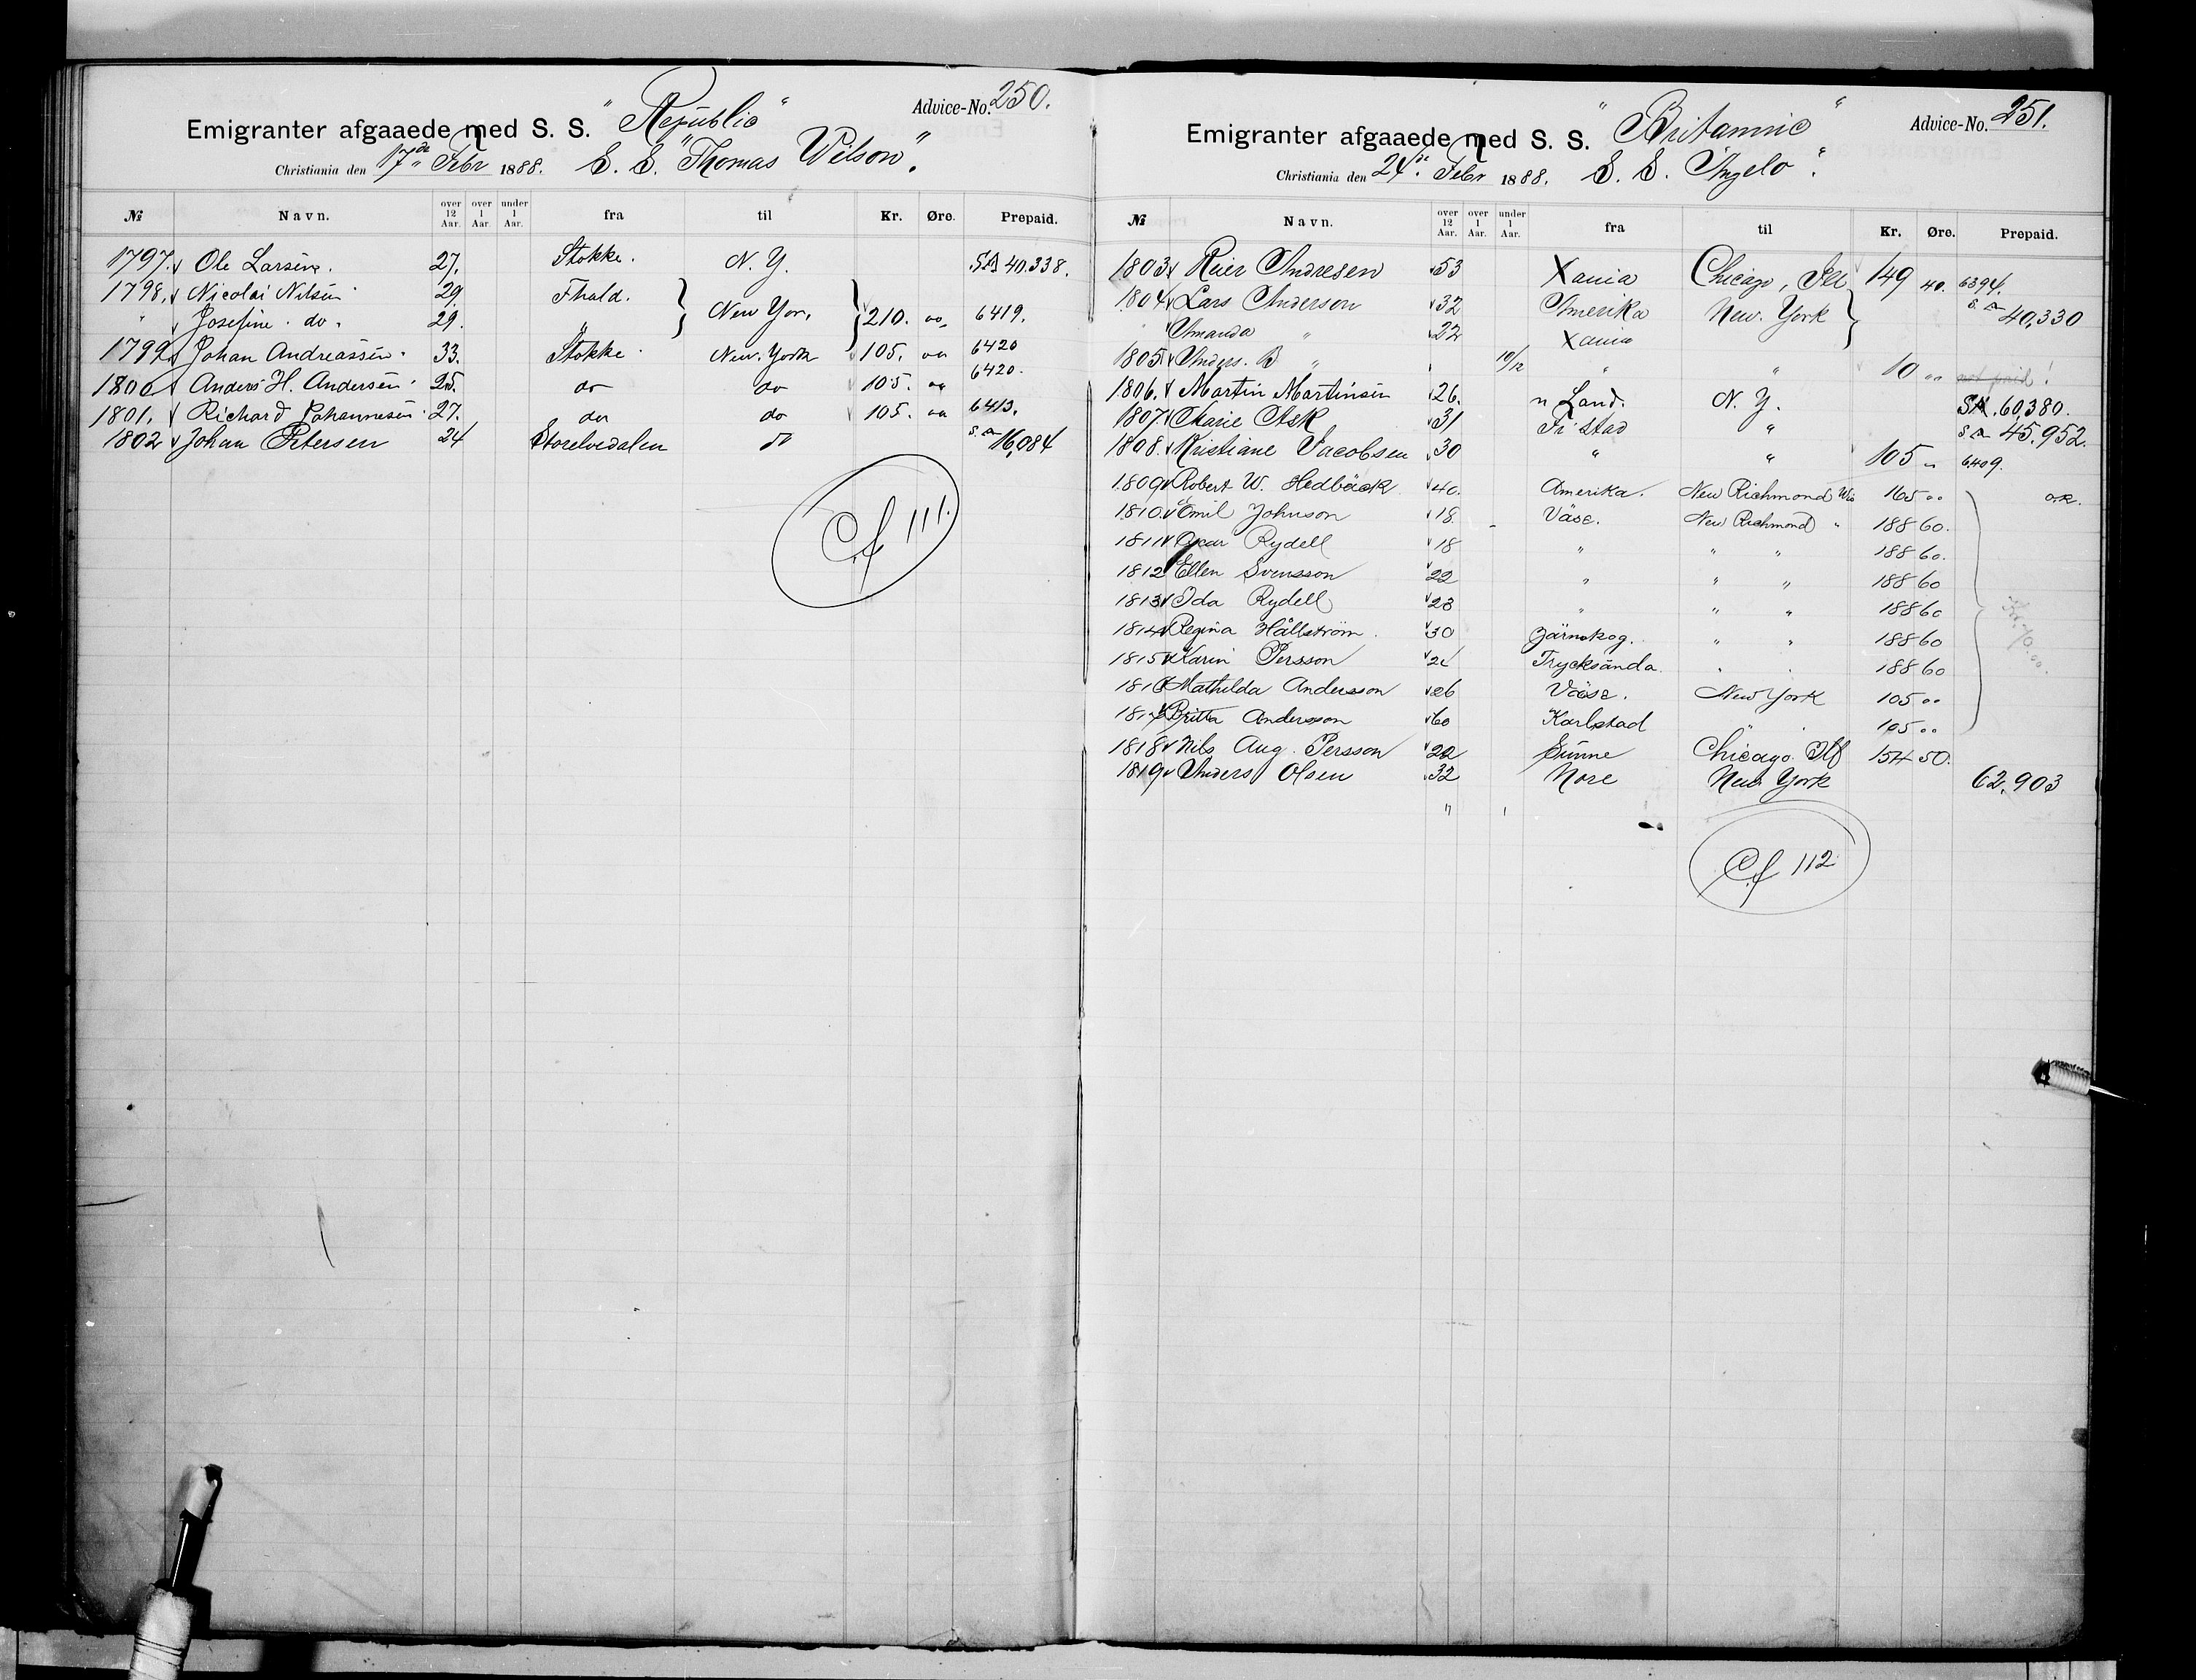 Advice-No. 250.
Emigranter afgaaede med S. S. "Republic"
Christiania den 17de Febr 1888. S. S. "Thomas Wilson".
№ Navn. over 12 Aar. over 1 Aar. under 1 Aar. fra til Kr. Øre. Prepaid.
1797. Ole Larsen. 27. Stokke. N. Y. SA 40.338.
1798. Nicolai Nilsen 29. Fhald. New Yor. 210. 00. 6419.
" Josefine do. 29. "
1799. Johan Andreassen. 33. Stokke. New York 105. 00 6420
1800 Anders H. Andersen. 25. do do 105. 00 6420.
1801. Richard Johannesen. 27. do do 105. 00 6413.
1802 Johan Petersen 24 Storelvedalen do S. A 16,084
Cf 111.
Advice-No. 251.
Emigranter afgaaede med S. S. "Britannic"
Christiania den 24de Febr 1888. S. S. "Angelo".
№ Navn. over 12 Aar. over 1 Aar. under 1 Aar. fra til Kr. Øre. Prepaid.
1803 Reier Andresen 53 Xania Chicago, Ill 149 40. 6394.
1804 Lars Anderson 32 Amerika New York S. A 40,330
" Amanda " 22 Xania
1805 Anders. B " 10/12 " " 10 " not paid!
1806. Martin Martinsen 26. n Land. N. Y. SA. 60,380.
1807. Marie Ask 31 Fr Stad " S A 45,952.
1808. Kristiane Jacobsen 30 " " 105 " 6409.
1809 Robert W. Hedbäck 40. Amerika. New Richmond Wis 165 00 o.k.
1810. Emil Johnson 18. Väse. New Richmond " 188 60.
1811 Oscar Rydell 18 " " " 188 60.
1812 Ellen Svensson 22 " " " 188 60
1813 Ida Rydell 23 " " " 188 60
1814 Regina Hällström. 30 Järnskog. " " 188 60
1815 Karin Persson 21 Trycksände. " " 188 60
1816 Mathilda Andersson 26 Väse. New York 105 00
1817 Britta Andersson 60 Karlstad " " 105 00
1818 Nils Aug. Persson 22 Sunne Chicago Ill 154 50.
1819 Anders Olsen 32 Nore New York 62,903
Cf 112